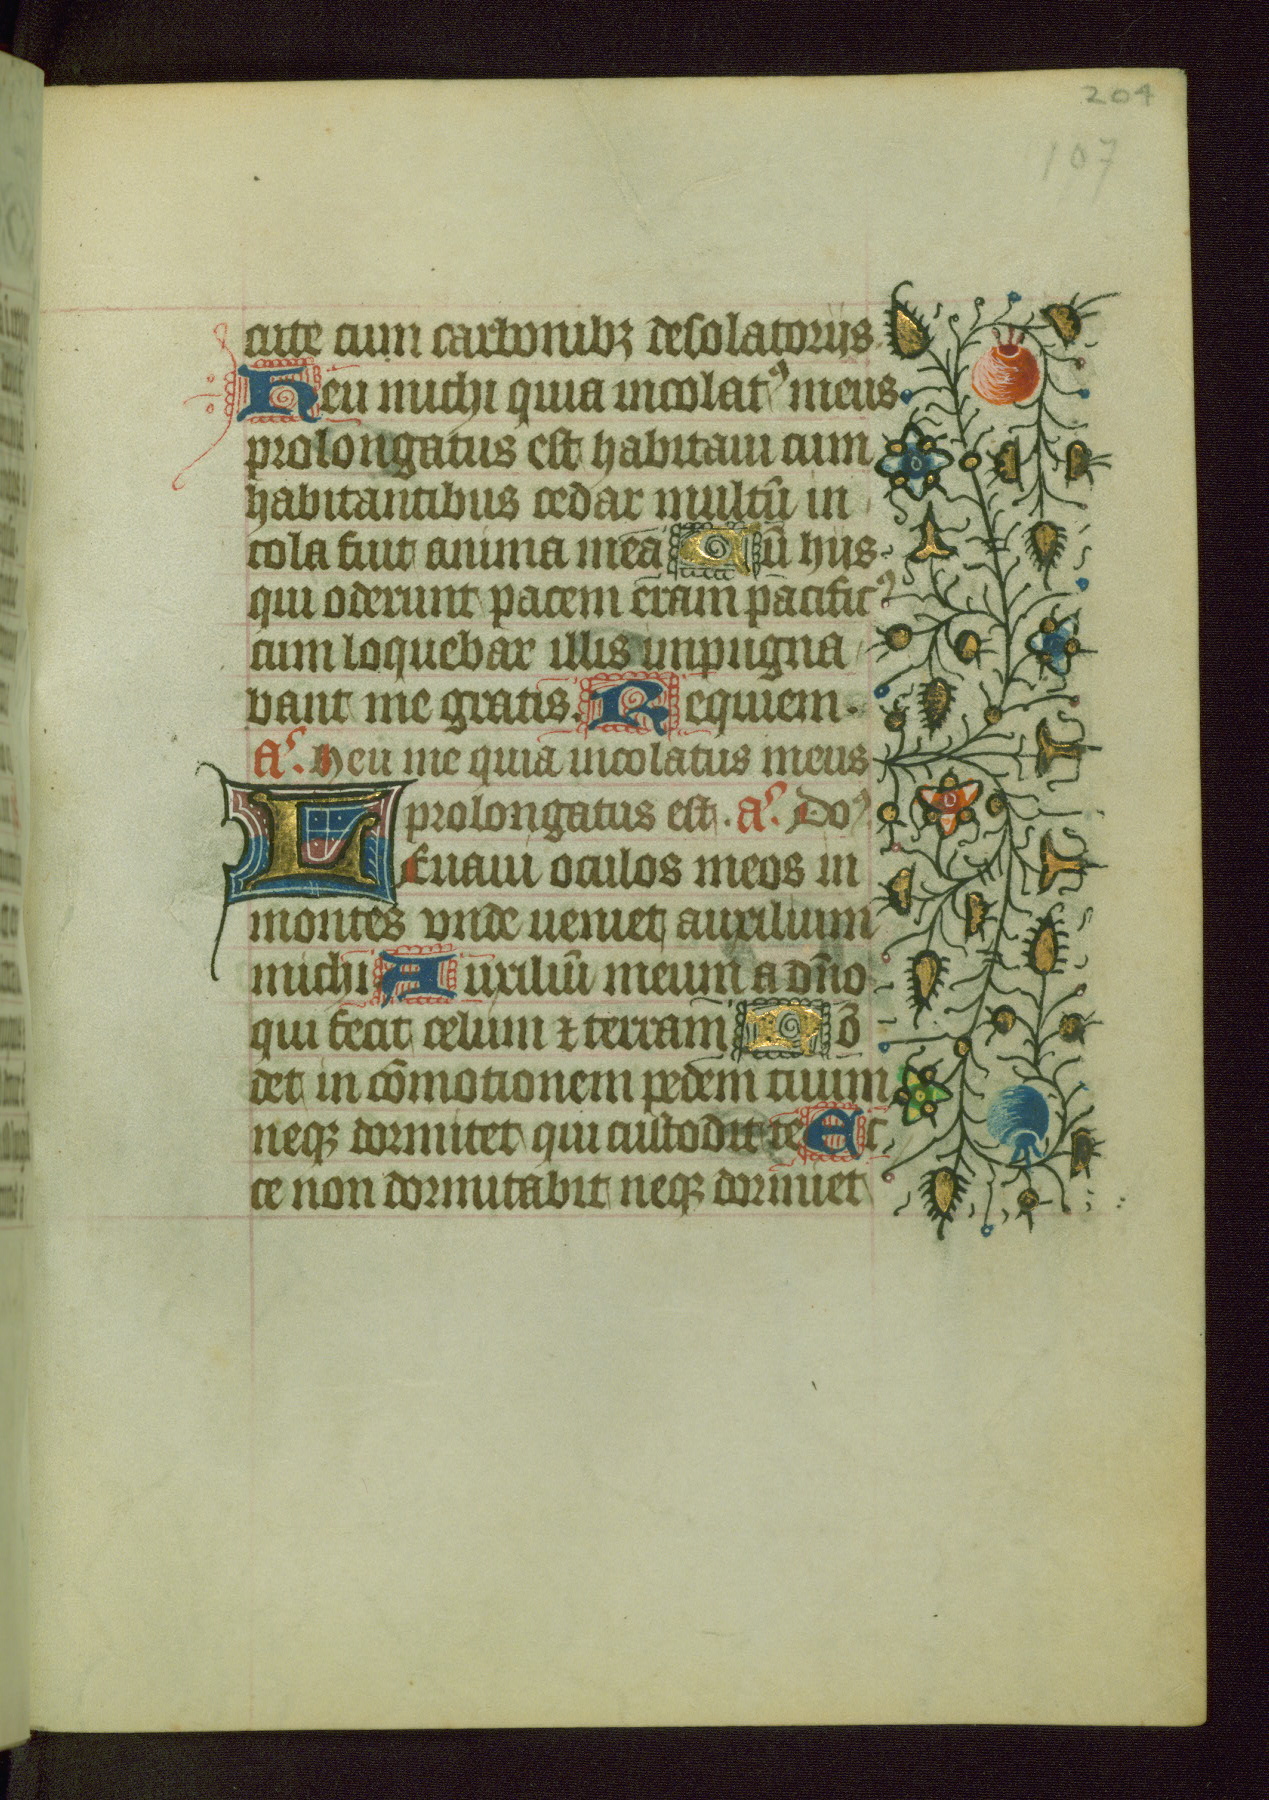 204
107
cute cum carbonibꝫ desolatorijs
Heu michi quia incolatꝰ meus
prolongatus est habitaui cum
habitantibus cedar multū in
cola fuit anima mea Cū hiis
qui oderunt pacem eram pacificꝰ
cum loquebar illis inpugna
bant me gratis. Requiem.
Aͫ. Heu me quia incolatus meus
prolongatus est. aͫ. Doꝰ
Leuaui oculos meos in
montes vnde ueniet auxilium
michi Auxiliū meum a dn̄o
qui fecit celum ⁊ terram Nō
det in cōmotionem pedem tuum
neqꝫ dormitet qui custodit te Ec
ce non dormitabit neqꝫ dormiet